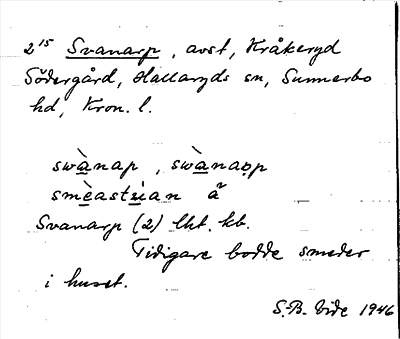 2¹⁵ Svanarp, avst, Kråkeryd
Södergård, Hallaryds sn, Sunnerbo
hd, Kron. l.
swànap, swànaọp
smèastu̇an å̃
Svanarp (2) lht. kb.
Tidigare bodde smeder
i huset.
S.-B. Vide 1946